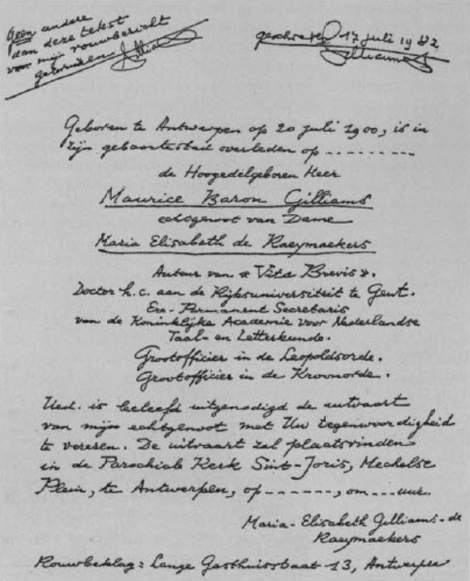 Geen andere
dan deze tekst
voor mijn rouwbericht
gebruiken Gilliams
geschreven 17 juli 1982
Gilliams
Geboren te Antwerpen op 20 juli 1900, is in
zijn geboortestad overleden op - - - - - - - - -
de Hoogedelgeboren Heer
Maurice Baron Gilliams
echtgenoot van Dame
Maria Elisabeth de Raeymaekers
Auteur van « Vita Brevis ».
Doctor h.c. aan de Rijksuniversiteit te Gent.
Ere-Permanent Secretaris
van de Koninklijke Academie voor Nederlandse
Taal- en Letterkunde.
Grootofficier in de Leopoldsorde.
Grootofficier in de Kroonorde.
Ued. is beleefd uitgenodigd de uitvaart
van mijn echtgenoot met Uw tegenwoordigheid
te vereren. De uitvaart zal plaatsvinden
in de Parochiale Kerk Sint-Joris, Mechelse
Plein, te Antwerpen, op - - - - - -, om - - - uur.
Maria-Elisabeth Gilliams-de
Raeymaekers
Rouwbeklag: Lange Gasthuisstraat 13, Antwerpen